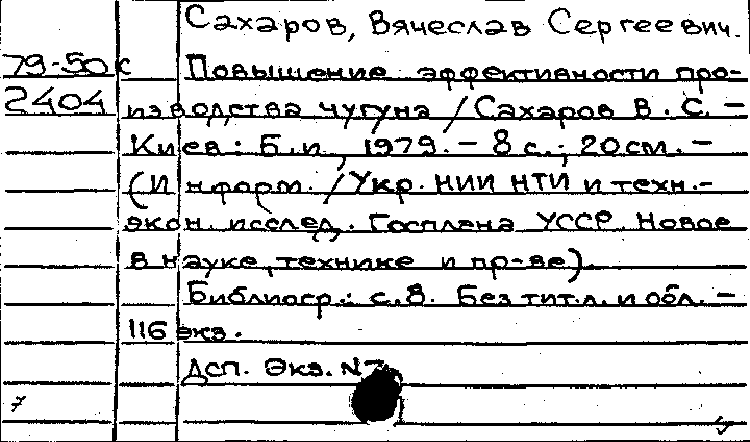 Сахаров, Вячеслав Сергеевич.
79-50к Повышение эффективности про-
2404 изводства чугуна / Сахаров В. С. -
Киев: Б.и., 1979. - 8 с.; 20 см. -
(Информ. / Укр. НИИ НТИ и техн.-
экон. исслед. Госплана УССР. Новое
в науке, технике и пр-ве).
Библиогр.: с. 8. Без тит. л. и обл. -
116 экз.
Дсп. Экз. N
7